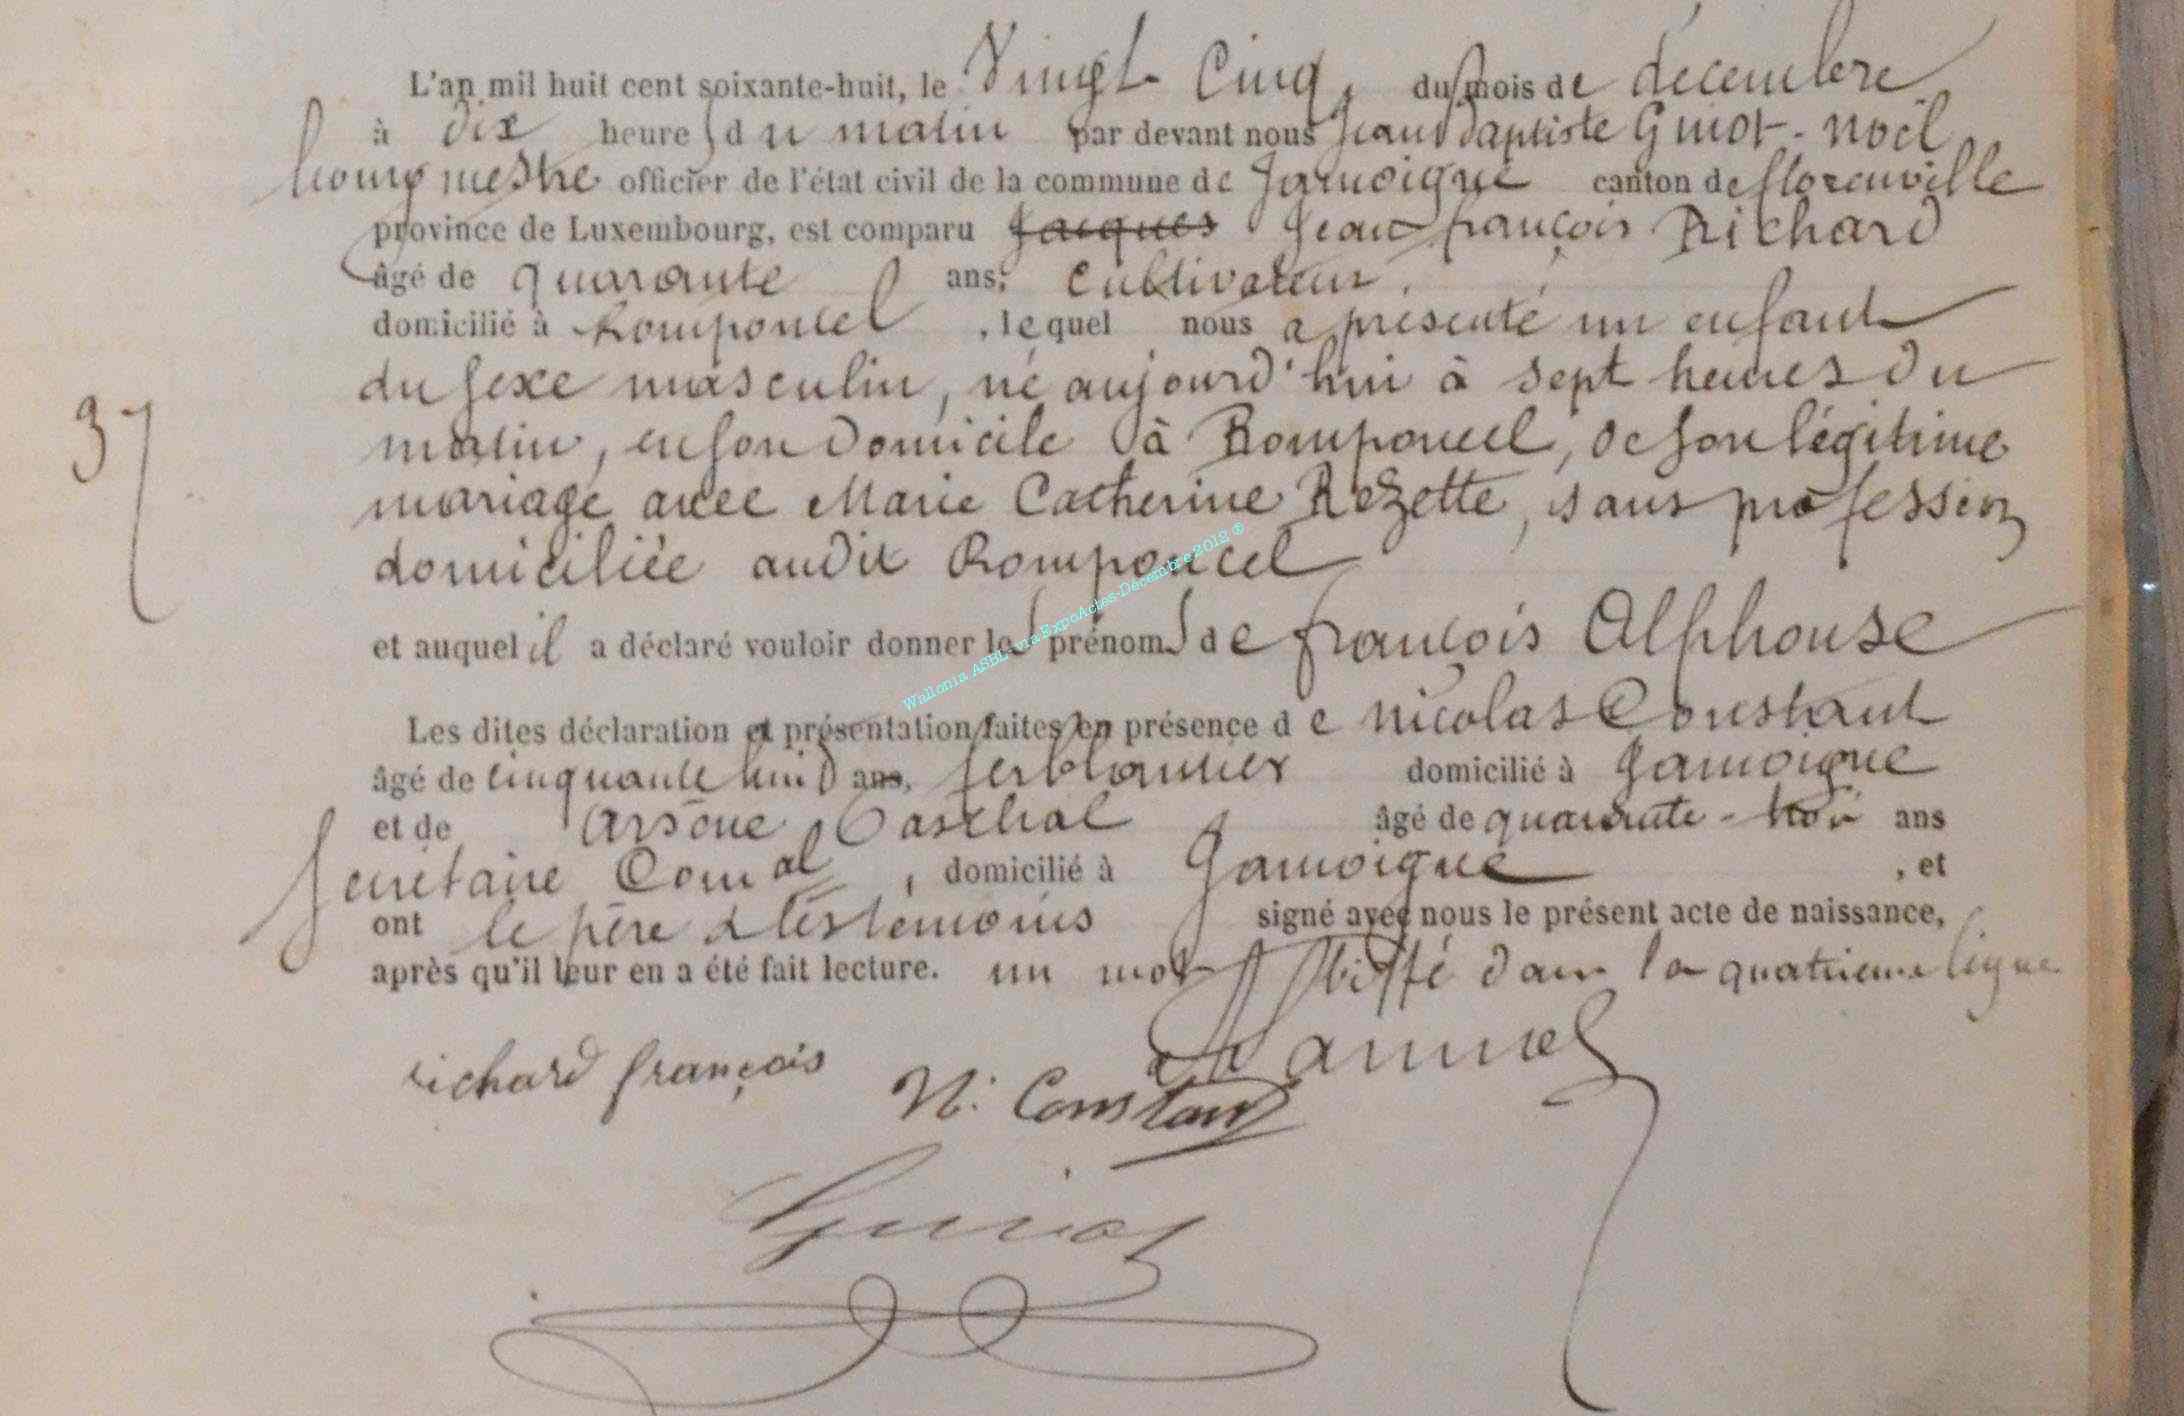 L'an mil huit cent soixante-huit, le Vingt Cinq du mois de décembre
à dix heures du matin par devant nous Jean Baptiste Guiot-Noël
bourgmestre officier de l'état civil de la commune de Jamoigne canton de florenville
province de Luxembourg, est comparu Jacques Jean françois Richard
âgé de quarante ans, cultivateur,
domicilié à Romponcel, lequel nous a présenté un enfant
du sexe masculin, né aujourd'hui à sept heures du
37
matin, en son domicile à Romponcel, de son légitime
mariage avec Marie Catherine Rezette, sans profession
domiciliée audit Romponcel
et auquel il a déclaré vouloir donner les prénoms de françois Alphonse
Wallonia ASBL via ExpoActes-Décembre 2012 ®
Les dites déclaration et présentation faites en présence de nicolas Constant
âgé de cinquante huit ans, ferblantier domicilié à Jamoigne
et de Arsène Paschal âgé de quarante- ans
secrétaire Comal, domicilié à Jamoigne, et
ont le père & les témoins signé avec nous le présent acte de naissance,
après qu'il leur en a été fait lecture. un mot biffé dans la quatrième ligne
richard françois N. Constant
Guiot